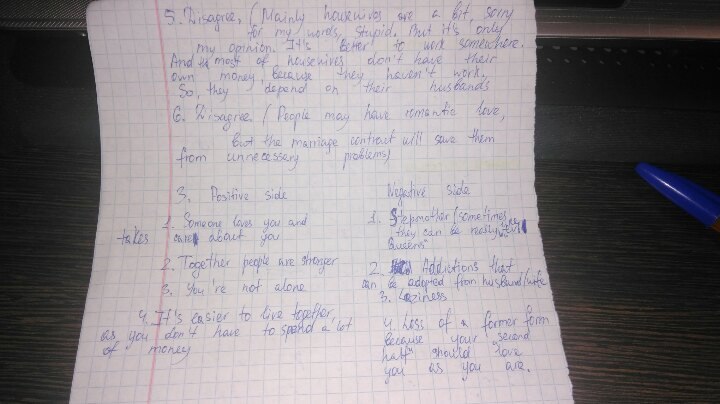 5. Disagree. (Mainly housewives are a bit, sorry
for my words, stupid. But it's only
my opinion. It's better to work somewhere.
And most of housewives don't have their
own money, because they haven't work.
So, they depend on their husbands
6. Disagree. (People may have romantic love,
but the marriage contract will save them
from unnecessary problems)
3. Positive side
1. Someone loves you and
takes care about you
2. Together people are stronger
3. You're not alone
4. It's easier to live together,
as you don't have to spend a lot
of money
Negative side
1. Stepmother (sometimes
they can be really
Queens"
2. Addictions that
can be adopted from husband/wife
3. Laziness
4. Loss of a former form
because your "second
half" should love
you as you are.